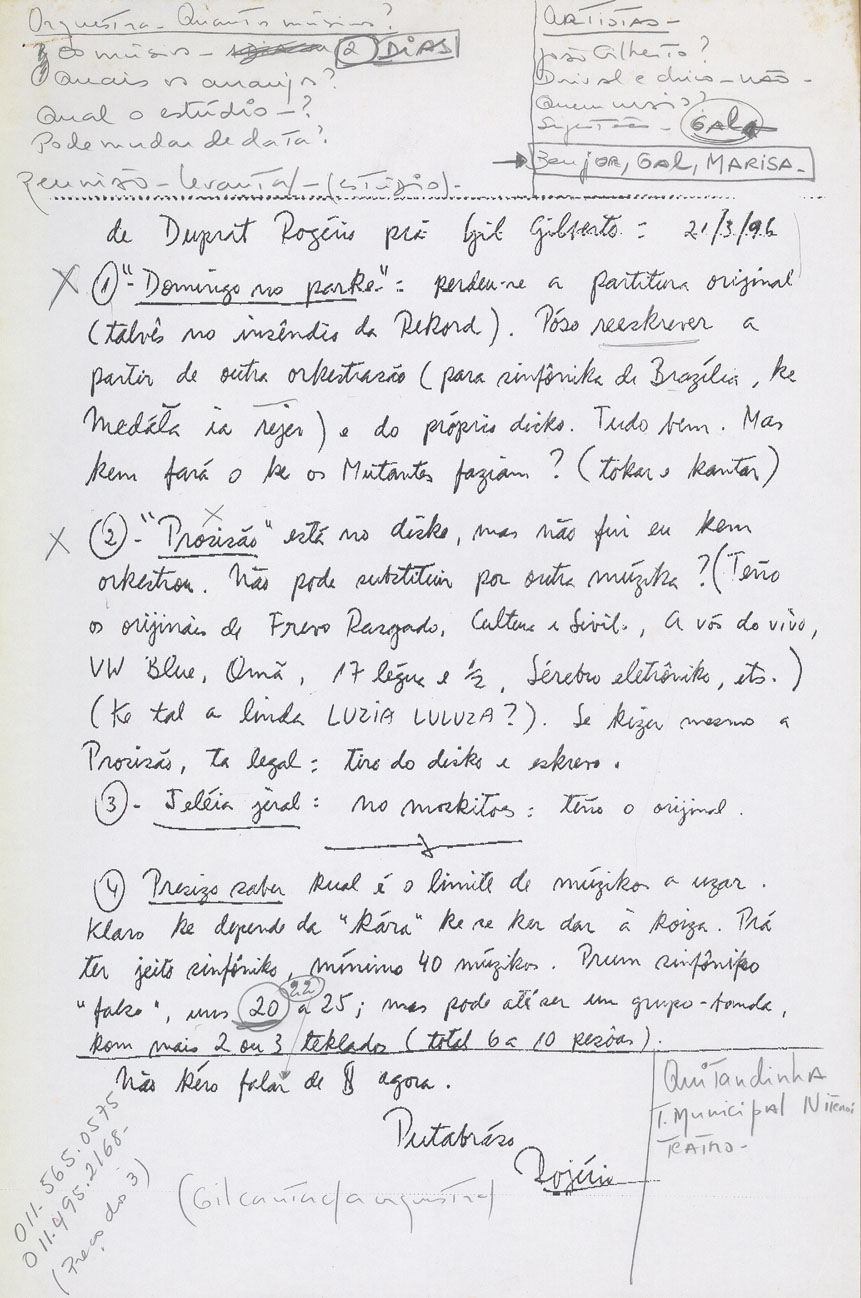 Orquestra - Quantos músicos?
20 músicos - 2 DIAS
Quais os arranjos?
Qual o estúdio - ?
Pode mudar de data?
Reunião - levanta/ - (estúdio) -
ARTISTAS -
João Gilberto?
Dorival e Chico - não -
Quem mais?
Sugestão - GAL
Benjor, GAL, MARISA -
de Duprat Rogério prá Gil Gilberto = 21/3/96
X ① "- Domingo no parke" = perdeu-se a partitura original
(talvês no insêndio da Rekord). Póso reeskrever a
partir de outra orkestrasão (para sinfônika de Brazília, ke
Medáła ia r̃ejer) e do próprio disko. Tudo bem. Mas
kem fará o ke os Mutantes faziam? (tokar e kantar)
X ② - "Prosisão" está no disko, mas não fui eu kem
X
orkestrou. Não pode substituir por outra múzika? (Teño
os orijinais de Frevo Razgado, Cultura e Sivil., A vós do vivo,
VW Blue, Omã, 17 légua e 1/2, Sérebro eletrôniko, ets.)
(Ke tal a linda LUZIA LULUZA?). Se kizer mesmo a
Prosisão, ta legal = tiro do disko e eskrevo.
③ - Jeléia jeral = no moskitoes = teño o orijinal.
④ Presizo saber kual é o limite de múzikos a uzar.
Klaro ke depende da "kára" ke se ker dar à koiza. Prá
ter jeito sinfôniko, mínimo 40 múzikos. Prum sinfôniko
22
"falso", uns 20 a 25; mas pode até ser um grupo-banda,
kom mais 2 ou 3 teklados (total 6 a 10 pesôas).
Não kéro falar de $ agora.
Putabráso
Rogério
Quitandinha
T. Municipal Niteroi
TEATRO -
(Gil canta c/ a orquestra)
011.565.0575
011.495.2168 -
(Preço dos 3)